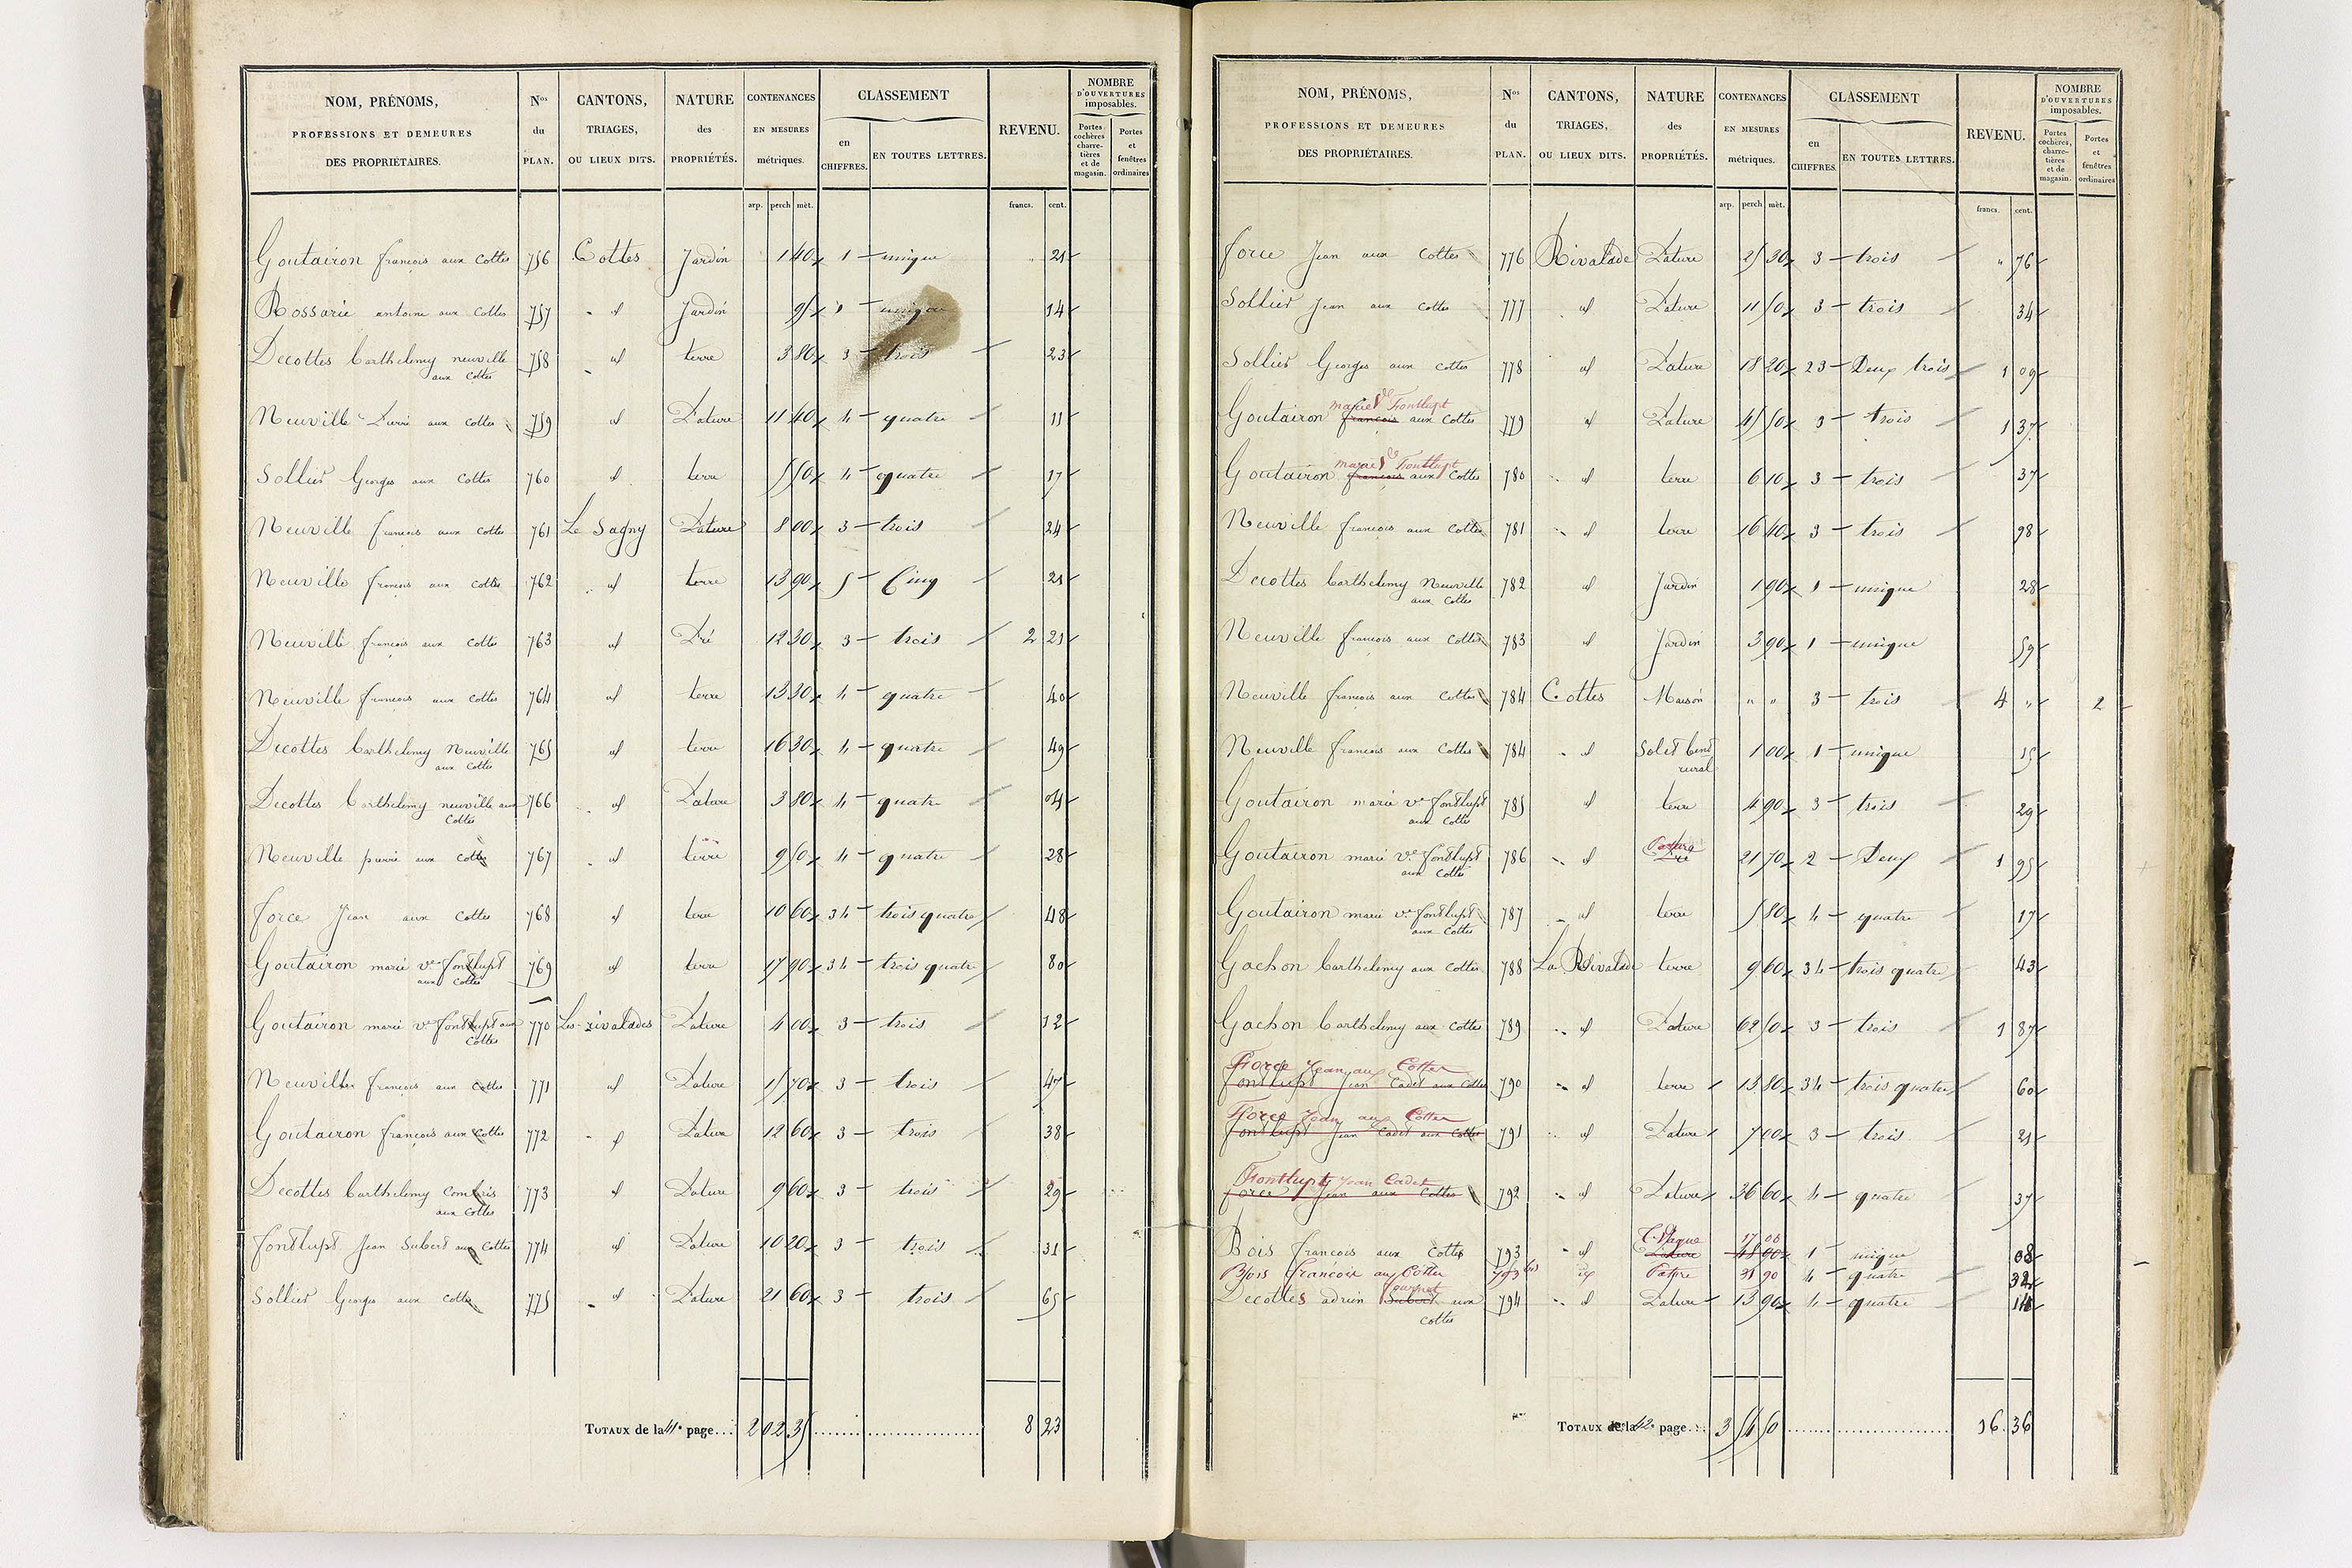 NOM, PRÉNOMS, PROFESSIONS ET DEMEURES DES PROPRIÉTAIRES. Nos du PLAN. CANTONS, TRIAGES, OU LIEUX DITS. NATURE des PROPRIÉTÉS. CONTENANCES EN MESURES métriques. CLASSEMENT en CHIFFRES. EN TOUTES LETTRES. REVENU. NOMBRE D'OUVERTURES imposables. Portes cochères charretières et de magasin. Portes et fenêtres ordinaires
arp. perch mèt. francs. cent.
Goutairon françois aux Cottes 756 Cottes Jardin 1 40 1 unique 21
Rossarie antoine aux Cottes 757 id Jardin 95 1 unique 14
Decottes Barthelemy neuville 758 id terre 3 80 3 trois 23
aux Cottes
Neuville Pierre aux Cottes 759 id Pature 11 40 4 quatre 11
Sollier Georges aux Cottes 760 id terre 5 50 4 quatre 17
Neuville francois aux Cottes 761 Le Sagny Pature 8 00 3 trois 24
Neuville francois aux Cottes 762 id terre 13 90 5 Cinq 21
Neuville francois aux Cottes 763 id Pré 12 30 3 trois 2 21
Neuville francois aux Cottes 764 id terre 13 30 4 quatre 40
Decottes Barthelemy Neuville 765 id terre 16 30 4 quatre 49
aux Cottes
Decottes Barthelemy neuville aux 766 id Pature 3 80 4 quatre 04
Cottes
Neuville pierre aux Cottes 767 id terre 9 50 4 quatre 28
force Jean aux Cottes 768 id terre 10 60 3 4 trois quatre 48
Goutairon marie ve fontlupt 769 id terre 17 90 3 4 trois quatre 80
aux Cottes
Goutairon marie ve fontlupt aux 770 Les rivalades Pature 4 00 3 trois 12
Cottes
Neuville francois aux Cottes 771 id Pature 15 70 3 trois 47
Goutairon françois aux Cottes 772 id Pature 12 60 3 trois 38
Decottes Barthelemy Combris 773 id Pature 9 60 3 trois 29
aux Cottes
fontlupt Jean Subert aux Cottes 774 id Pature 10 20 3 trois 31
Sollier Georges aux Cottes 775 id Pature 21 60 3 trois 65
TOTAUX de la 41e page... 2 02 35 8 23
NOM, PRÉNOMS, PROFESSIONS ET DEMEURES DES PROPRIÉTAIRES. Nos du PLAN. CANTONS, TRIAGES, OU LIEUX DITS. NATURE des PROPRIÉTÉS. CONTENANCES EN MESURES métriques. CLASSEMENT en CHIFFRES EN TOUTES LETTRES. REVENU. NOMBRE D'OUVERTURES imposables. Portes cochères, charretières et de magasin. Portes et fenêtres ordinaires
arp. perch mèt. francs. cent.
force Jean aux Cottes 776 Rivalade Pature 25 30 3 trois " 76
Sollier Jean aux Cottes 777 id Pature 11 50 3 trois 34
Sollier Georges aux Cottes 778 id Pature 18 20 2 3 Deux trois 1 09
marie ve Fontlupt
Goutairon francois aux Cottes 779 id Pature 45 50 3 trois 1 37
marie ve Fontlupt
Goutairon francois aux Cottes 780 id terre 6 10 3 trois 37
Neuville francois aux Cottes 781 id terre 16 40 3 trois 98
Decottes Barthelemy Neuville 782 id Jardin 1 90 1 unique 28
aux Cottes
Neuville francois aux Cottes 783 id Jardin 3 90 1 unique 59
Neuville francois aux Cottes 784 Cottes Maison " " 3 trois 4 " 2
Neuville francois aux Cottes 784 id Sol et bent 1 00 1 unique 15
rural
Goutairon marie ve fontlupt 785 id terre 4 90 3 trois 29
aux Cottes
Goutairon marie ve fontlupt 786 id Pré 21 70 2 Deux 1 95
aux Cottes
Goutairon marie ve fontlupt 787 id terre 5 80 4 quatre 17
aux Cottes
Gachon Barthelemy aux Cottes 788 La Rivalade terre 9 60 3 4 trois quatre 43
Gachon Barthelemy aux Cottes 789 id Pature 62 50 3 trois 1 87
Force Jean aux Cottes
fontlupt Jean Cadet aux Cottes 790 id terre 13 80 3 4 trois quatre 60
Force Jean aux Cottes
fontlupt Jean Cadet aux Cottes 791 id Pature 7 00 3 trois 21
Fontlupt Jean Cadet
force Jean aux Cottes 792 id Pature 36 60 4 quatre 37
T. Vague 17 00
Bois francois aux Cottes 793 id Pature 48 90 1 unique 08
Bois francois aux Cottes 793 bis id Patre 31 90 4 quatre 32
Decottes adrien Subert aux 794 id Pature 13 90 4 quatre 14
Cottes
TOTAUX de la 42e page... 3 54 50 16 36